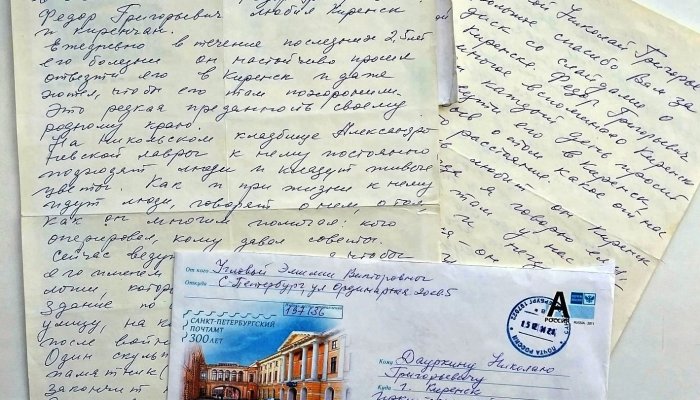 Федор Григорьевич любил Киренск
и киренчан.
Ежедневно в течение последних 2,5 лет
его болезни он настойчиво просил
отвезти его в Киренск и даже
хотел, чтобы его там похоронили.
Это редкая преданность своему
родному краю.
На Никольском кладбище Александро-
Невской лавры к нему постоянно
подходят люди и кладут живые
цветы. Как и при жизни к нему
идут люди, говорят о нем, о том,
как он многим помогал: кого
оперировал, кому давал советы.
Сейчас ведут чтобы
его именем
логии, котор
Здание по
улицу, на ко
после войн
Один скуль
памятник
закончит
Николай Григорье
спасибо Вам за
диск со слайдами о
Киренске. Федор Григорьевич
многое вспоминал о Киренск
каждый день просил
его в Киренск,
о том, какое от нас
расстояние.
любит он Киренск
я говорю ему
там у нас
и нему
он
От кого Угловой Эмилии Викторовны
Откуда С-Петербург, ул Ординарная
197136
САНКТ-ПЕТЕРБУРГСКИЙ
ПОЧТАМТ
300 ЛЕТ
А
РОССИЯ
RUSSIA, 2011
ПОЧТА РОССИИ
Кому Дауркину Николаю
Григорьевичу
Куда г. Киренск